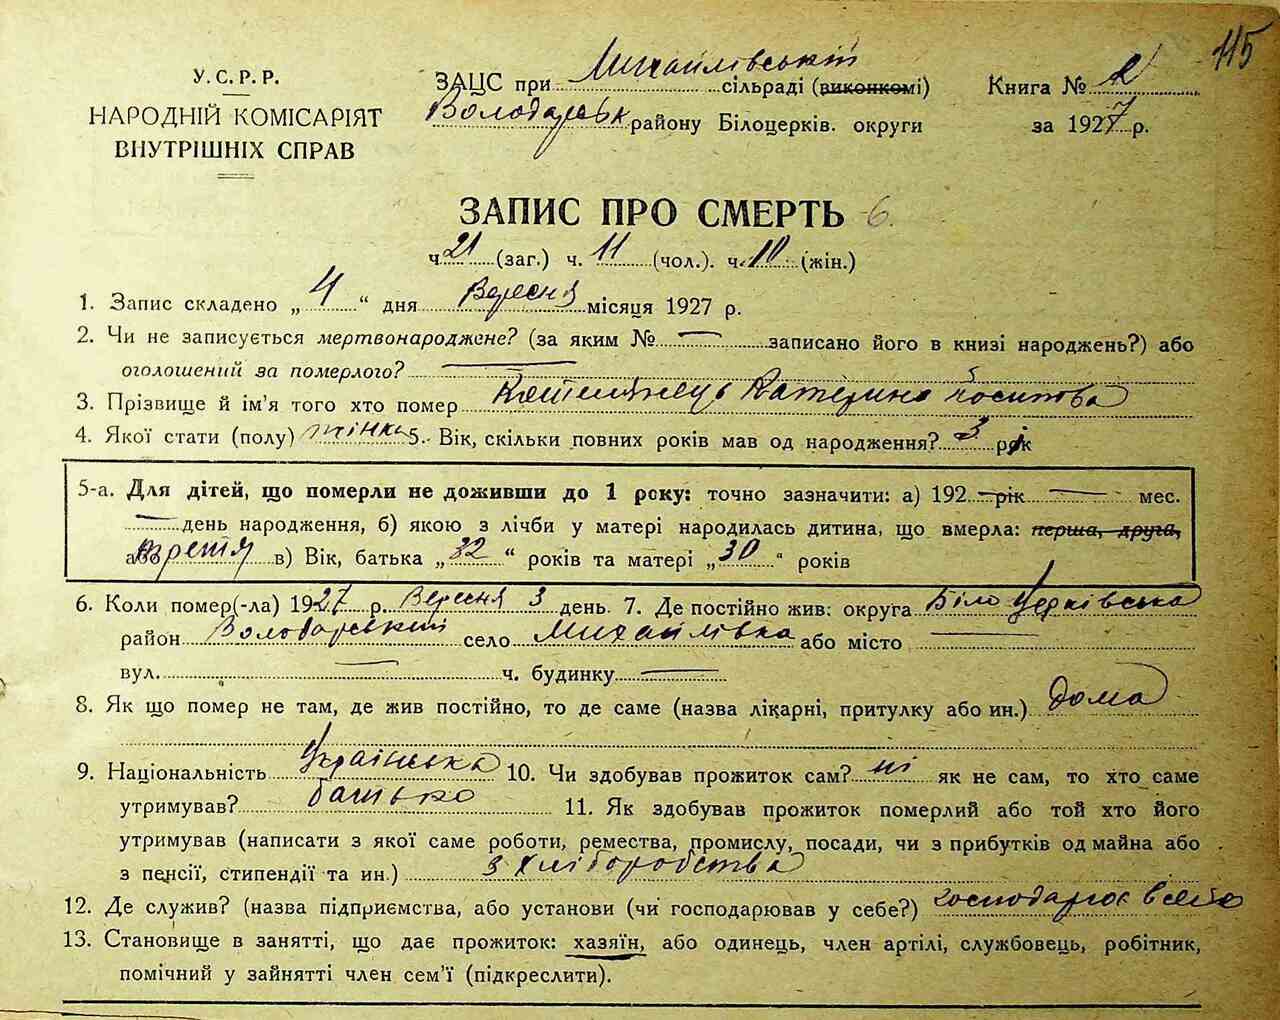 115
У.С.Р.Р.
НАРОДНІЙ КОМІСАРІЯТ
ВНУТРІШНІХ СПРАВ
ЗАЦС при Михайлівській сільраді (виконкомі)
Володарськ району Білоцерків. округи
Книга № 2
за 1927 р.
ЗАПИС ПРО СМЕРТЬ 6.
ч. 21 (заг.) ч. 11 (чол.). ч. 10 (жін.)
1. Запис складено „ 4 “ дня Вересня місяця 1927 р.
2. Чи не записується мертвонароджене? (за яким № — записано його в книзі народжень?) або
оголошений за померлого? —
3. Прізвище й ім'я того хто помер Катерина Йосипова
4. Якої стати (полу) жінка 5. Вік, скільки повних років мав од народження? 3 рік
5-а. Для дітей, що померли не доживши до 1 року: точно зазначити: а) 192 — рік — мес.
— день народження, б) якою з лічби у матері народилась дитина, що вмерла: перша, друга,
або третя в) Вік, батька „ 32 “ років та матері „ 30 “ років
6. Коли помер(-ла) 1927 р. Вересня 3 день. 7. Де постійно жив: округа Білоцерківська
район Володарський село Михайлівка або місто —
вул. — ч. будинку —
8. Як що помер не там, де жив постійно, то де саме (назва лікарні, притулку або ин.) дома
9. Національність Українська 10. Чи здобував прожиток сам? ні як не сам, то хто саме
утримував? батько 11. Як здобував прожиток померлий або той хто його
утримував (написати з якої саме роботи, ремества, промислу, посади, чи з прибутків од майна або
з пенсії, стипендії та ин.) з хліборобства
12. Де служив? (назва підприємства, або установи (чи господарював у себе?) господарює в себе
13. Становище в занятті, що дає прожиток: хазяїн, або одинець, член артілі, службовець, робітник,
помічний у зайнятті член сем'ї (підкреслити).